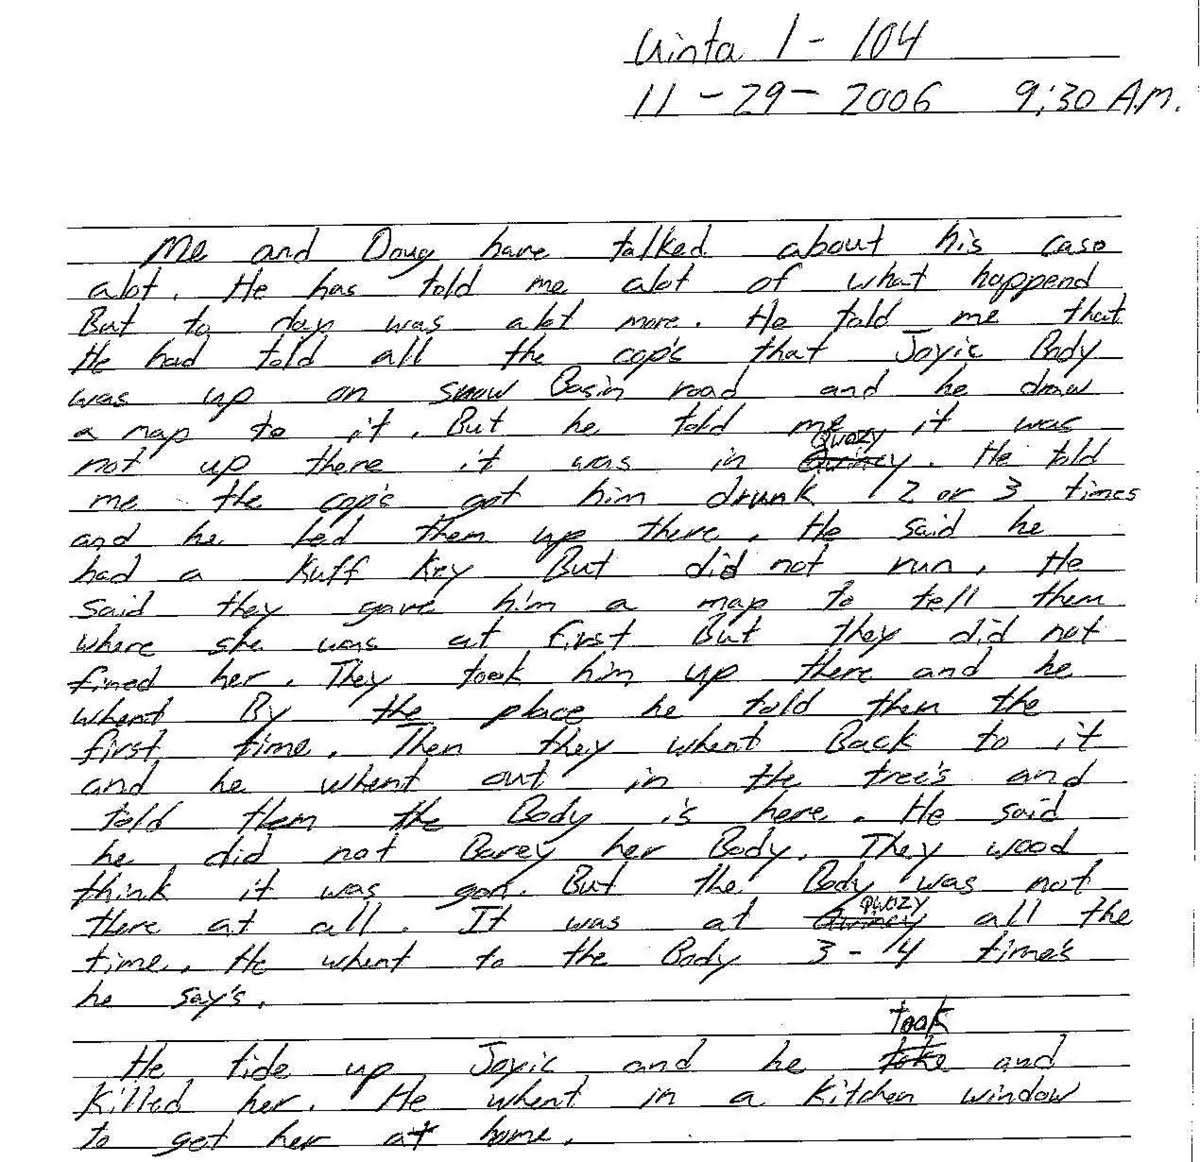 Uinta 1 - 104
11 - 29 - 2006 9:30 A.M.
Me and Doug have talked about his case
alot. He has told me alot of what happend
But to day was alot more. He told me that
He had told all the cop's that Joyic Body
was up on snow Basin road and he draw
a map to it. But he told me it was
Qwozy
not up there it was in . He told
me the cop's got him drunk 2 or 3 times
and he Led them up there. He said he
had a Kuff Key But did not run. He
said they gave him a map to tell them
where she was at first But they did not
fined her. They took him up there and he
whent By the place he told them the
first time. Then they whent Back to it
and he whent out in the tree's and
told them the Body is here. He said
he did not Barey her Body. They wood
think it was gon. But the Body was not
Qwozy
there at all. It was at all the
time. He whent to the Body 3 - 4 time's
he say's.
took
He tide up Joyic and he toke and
Killed her. He whent in a Kitchen window
to get her at home.